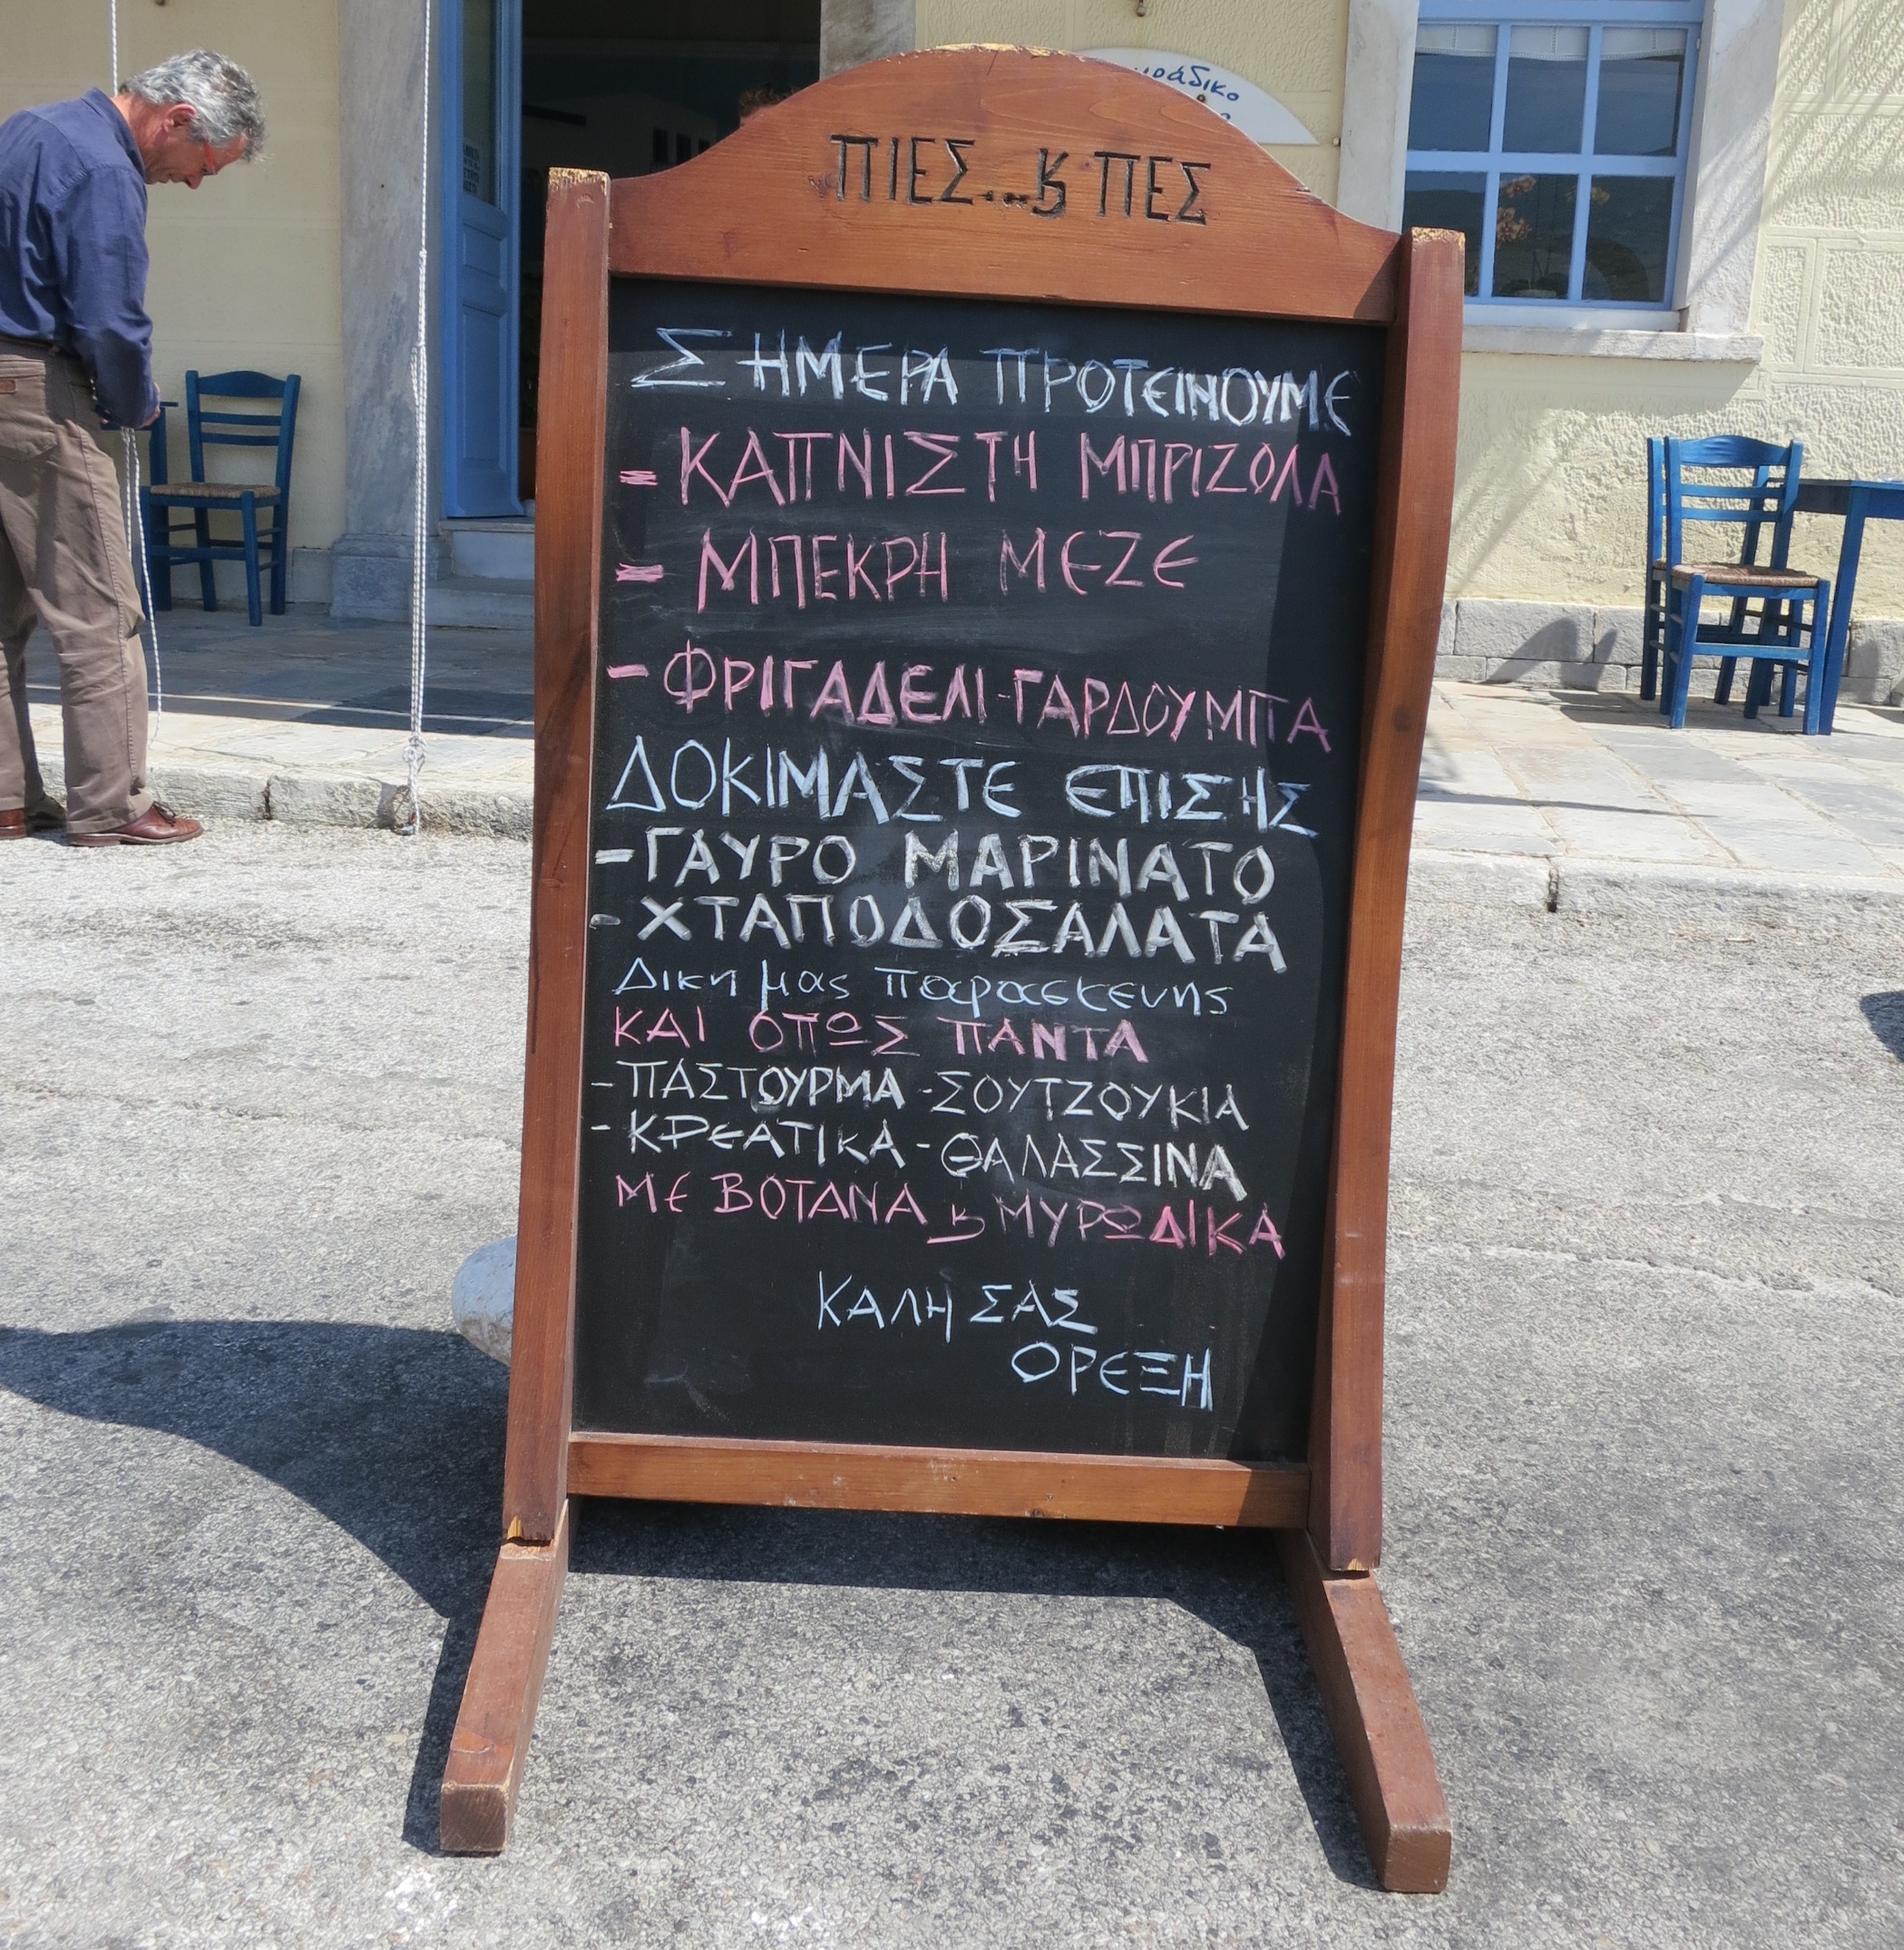 ΠΙΕΣ...ϗ ΠΕΣ
ΣΗΜΕΡΑ ΠΡΟΤΕΙΝΟΥΜΕ
- ΚΑΠΝΙΣΤΗ ΜΠΡΙΖΟΛΑ
- ΜΠΕΚΡΗ ΜΕΖΕ
- ΦΡΙΓΑΔΕΛΙ-ΓΑΡΔΟΥΜΠΑ
ΔΟΚΙΜΑΣΤΕ ΕΠΙΣΗΣ
- ΓΑΥΡΟ ΜΑΡΙΝΑΤΟ
- ΧΤΑΠΟΔΟΣΑΛΑΤΑ
Δικη μας παρασκευης
ΚΑΙ ΟΠΩΣ ΠΑΝΤΑ
- ΠΑΣΤΟΥΡΜΑ - ΣΟΥΤΖΟΥΚΙΑ
- ΚΡΕΑΤΙΚΑ - ΘΑΛΑΣΣΙΝΑ
ΜΕ ΒΟΤΑΝΑ ϗ ΜΥΡΩΔΙΚΑ
ΚΑΛΗ ΣΑΣ
ΟΡΕΞΗ